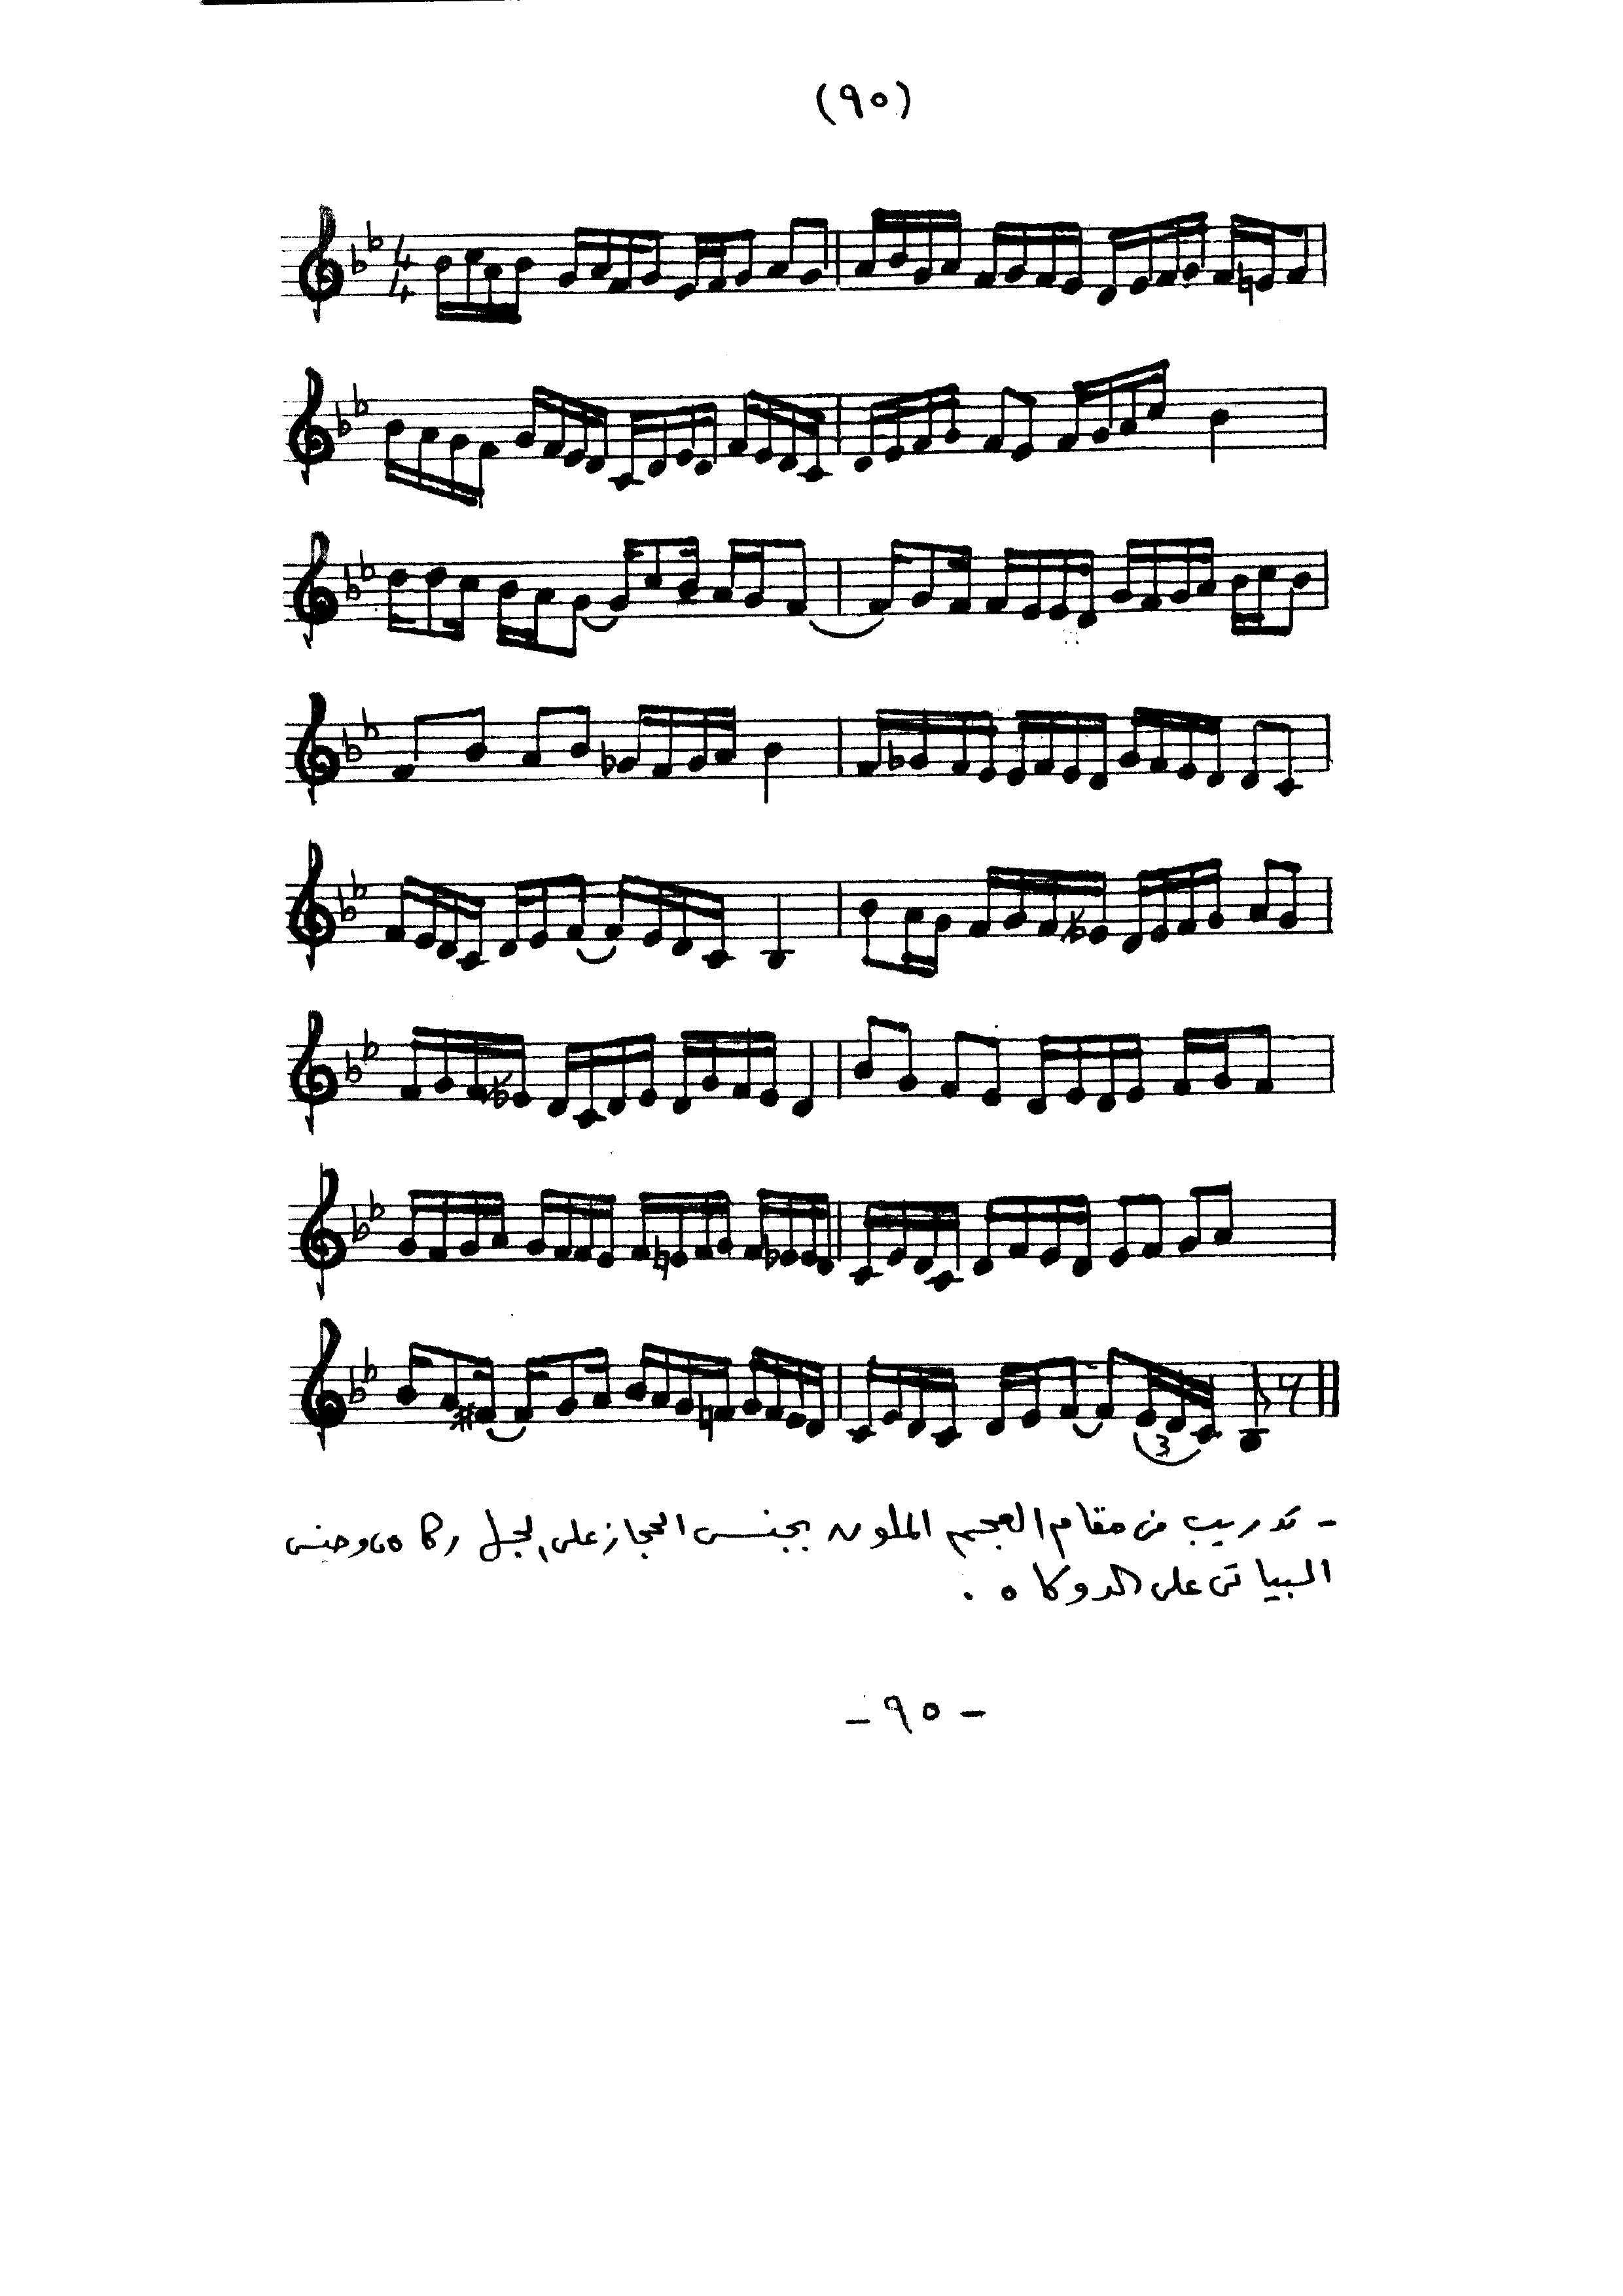 (٩٥)
4
4
3
- تدريب من مقام العجم الملون بجنس الحجاز على وجنس
البياتى على الدوكاه .
- ٩٥ -